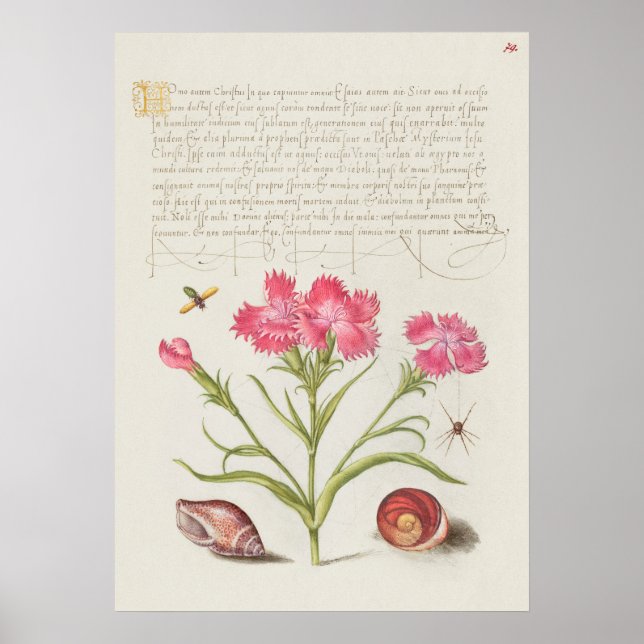 79.
Homo autem Christus In quo capiuntur omnia: Esaias autem ait Sicut ouis ad occisio
nem ductus est, et sicut agnus coram tondente se sine uoce: sic non aperuit os suum
In humilitate iudicium eius sublatum est, generationem eius quis enarrabit. multa
quidem, & alia plurima a prophetis prædicta sunt in Paschæ Mysterium Iesu
Christi. Ipse enim adductus est ut agnus: occisus Vt ouis ueluti ab ægypto nos a
mundi cultura redemit: & saluauit nos de manu Diaboli, quasi de manu Pharaonis: &
consignauit animas nostras proprio spiritu: & membra corporis nostri suo sanguine præ
cioso. Hic est qui in confusionem mortis misit mortem induit. & diabolum in planctum consti
tuit. Noli esse mihi Domine alienus: parce mihi In die mala: confundantur omnes qui me per
sequuntur. Et non confundar Ego. Confundantur omnes inimici mei qui quærunt animam